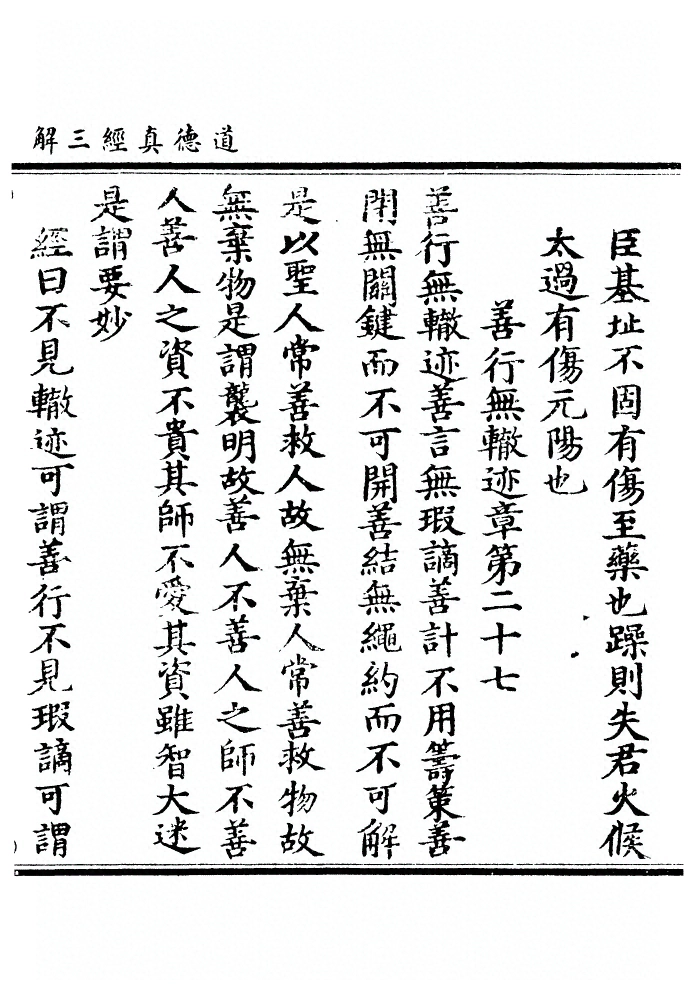 道德真經三解
臣基址不固有傷至藥也躁則失君火候
太過有傷元陽也
善行無轍迹章第二十七
善行無轍迹善言無瑕謫善計不用籌策善
閉無關鍵而不可開善結無繩約而不可解
是以聖人常善救人故無棄人常善救物故
無棄物是謂襲明故善人不善人之師不善
人善人之資不貴其師不愛其資雖智大迷
是謂要妙
經曰不見轍迹可謂善行不見瑕謫可謂